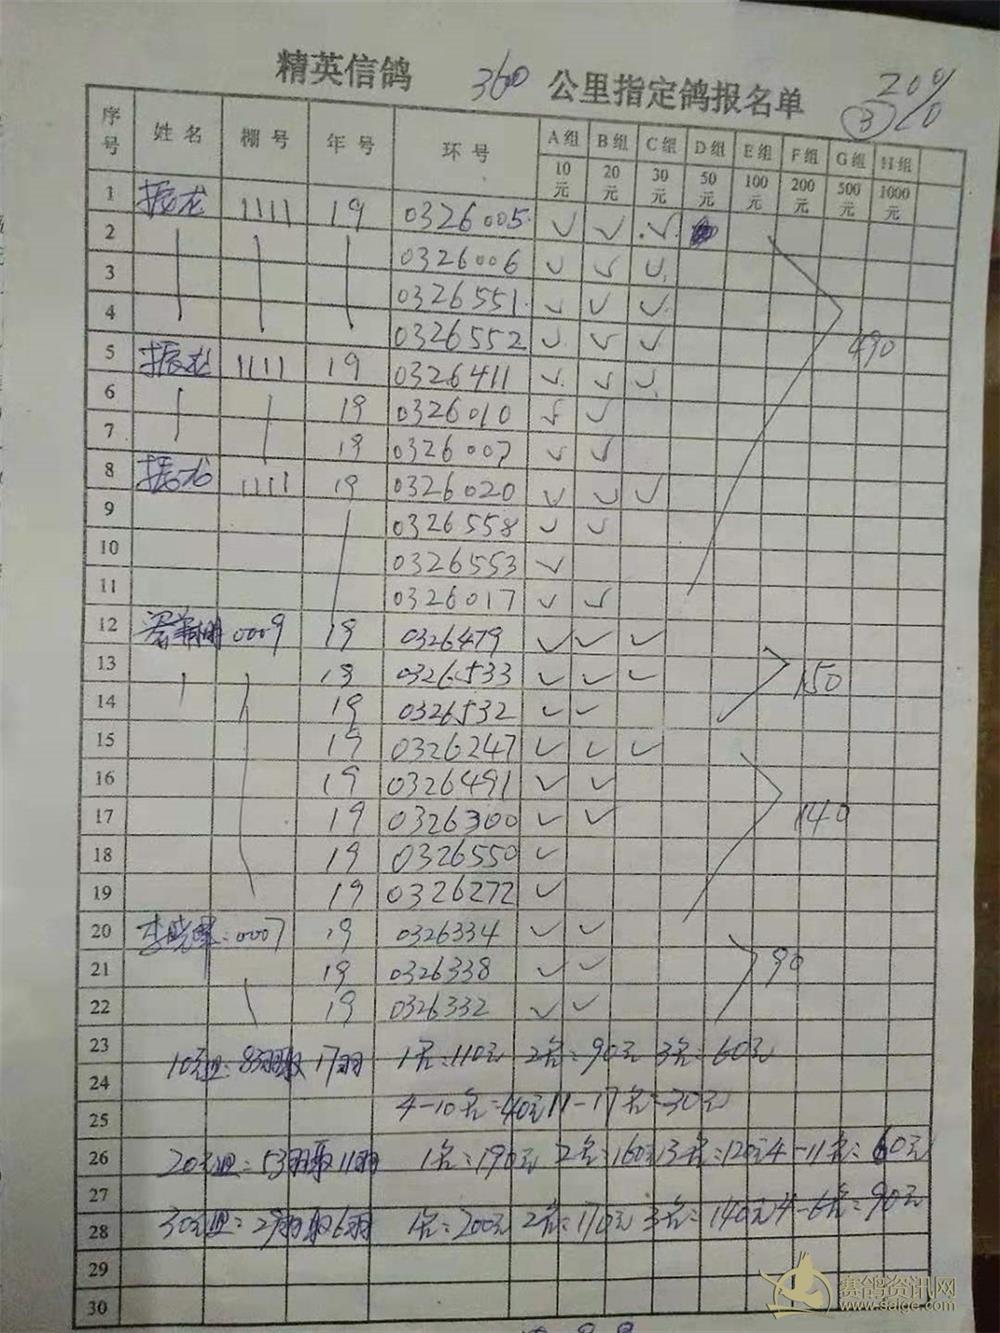 精英信鸽 360 公里指定鸽报名单 20%
③
序号 姓名 棚号 年号 环号 A组 B组 C组 D组 E组 F组 G组 H组
10元 20元 30元 50元 100元 200元 500元 1000元
1 振龙 1111 19 0326005 ✓ ✓ ✓
2 0326006 ✓ ✓ ✓
3 0326551 ✓ ✓ ✓
4 0326552 ✓ ✓ ✓ 490
5 振龙 1111 19 0326411 ✓ ✓ ✓
6 19 0326010 ✓ ✓
7 19 0326007 ✓ ✓
8 振龙 1111 19 0326020 ✓ ✓ ✓
9 0326558 ✓ ✓
10 0326553 ✓
11 0326017 ✓ ✓
12 0009 19 0326479 ✓ ✓ ✓
13 19 0326533 ✓ ✓ ✓ 150
14 19 0326532 ✓ ✓
15 19 0326247 ✓ ✓ ✓
16 19 0326491 ✓ ✓
17 19 0326300 ✓ ✓ 140
18 19 0326550 ✓
19 19 0326272 ✓
20 李晓 0007 19 0326334 ✓ ✓
21 19 0326338 ✓ ✓ 90
22 19 0326332 ✓ ✓
23 10元组:83羽取17羽 1名:110元 2名:90元 3名:60元
24
4-10名:40元 11-17名:30元
25
26 20元组:53羽取11羽 1名:190元 2名:160元 3名:120元 4-11名:60元
27
28 30元组:29羽取6羽 1名:200元 2名:170元 3名:140元 4-6名:90元
29
30
赛鸽资讯网
www.saige.com